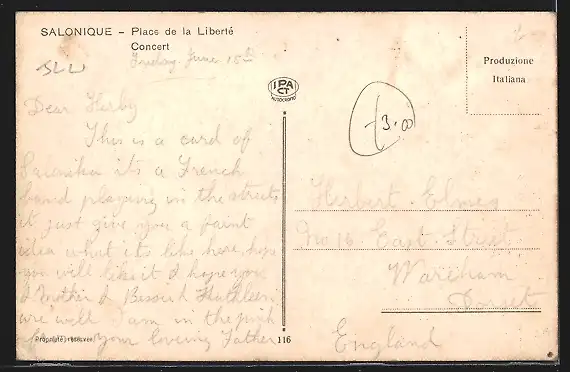 SALONIQUE – Place de la Liberté
Concert
Friday June 15th
Dear Herby
This is a card of
Salonika its a French
band playing in the streets
it just give you a faint
idea what its like here hope
you will like it I hope you
& Mother & Kathleen
are well I am in the pink
your loveing Father
Propriété réservée
116
IPA CT
AUTOCROMO
3.00
Produzione
Italiana
Herbert Elmes
No 16 East Street
Wareham
Dorset
England